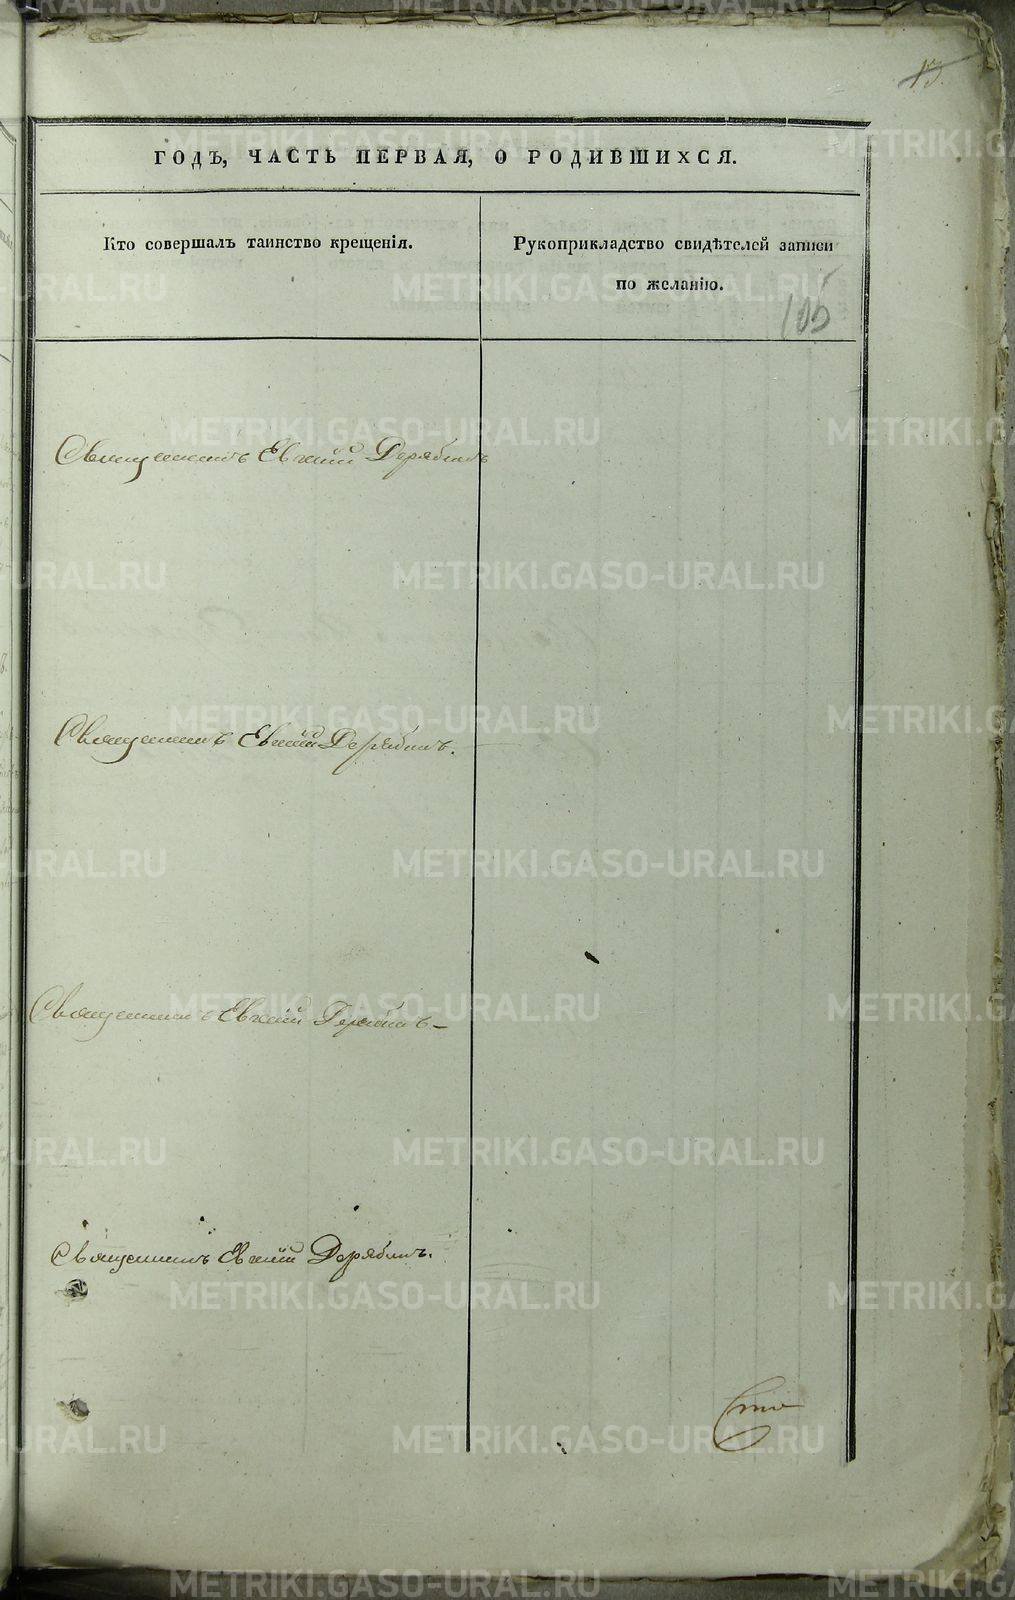 13.
ГОДЪ, ЧАСТЬ ПЕРВАЯ, О РОДИВШИХСЯ.
Кто совершалъ таинство крещенія.
Рукоприкладство свидѣтелей записи
по желанію.
105
Священникъ Евгеній Дерябинъ
Священникъ Евгеній Дерябинъ.
Священникъ Евгеній Дерябинъ
Священникъ Евгеній Дерябинъ.
METRIKI.GASO-URAL.RU